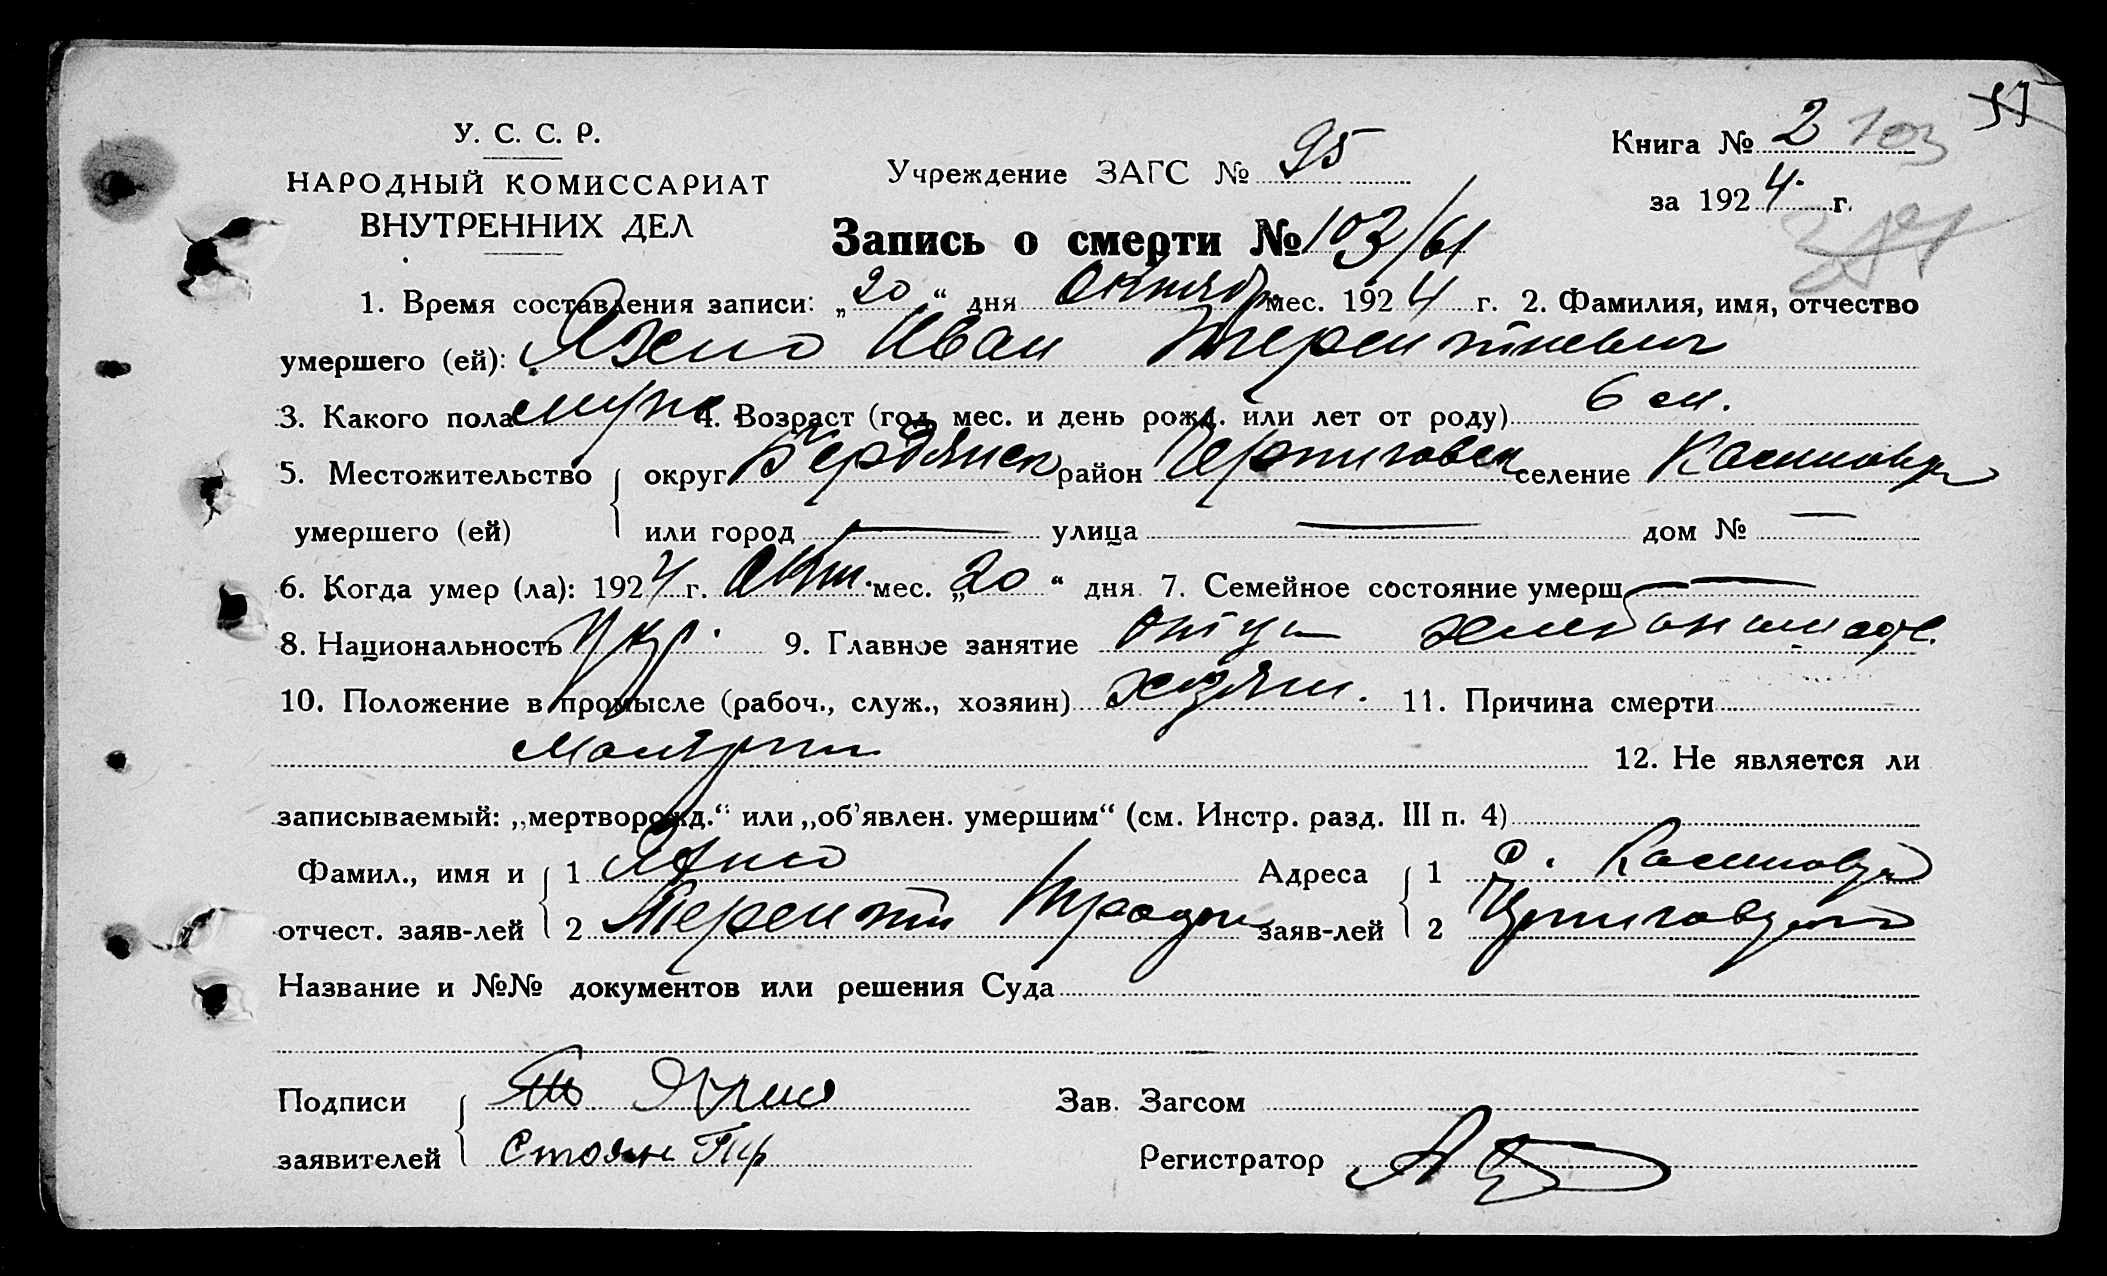 У. С. С. Р.
НАРОДНЫЙ КОМИССАРИАТ
ВНУТРЕННИХ ДЕЛ
Учреждение ЗАГС № 95
Книга № 2 103
за 1924 г.
Запись о смерти № 103/61
1. Время составления записи: „20“ дня Октябр мес. 1924 г. 2. Фамилия, имя, отчество
умершего (ей): Иван Терентиевич
3. Какого пола муж 4. Возраст (год, мес. и день рожд. или лет от роду) 6 м.
5. Местожительство округ Бердянск район Черниговск селение
умершего (ей) или город — улица — дом № —
6. Когда умер (ла): 1924 г. Окт. мес. „20“ дня 7. Семейное состояние умерш —
8. Национальность Укр. 9. Главное занятие
10. Положение в промысле (рабоч., служ., хозяин) хозяин. 11. Причина смерти
12. Не является ли
записываемый: „мертворожд.“ или „об'явлен. умершим“ (см. Инстр. разд. III п. 4)
Фамил., имя и 1 Адреса 1 с.
отчест. заяв-лей 2 Терентий заяв-лей 2
Название и №№ документов или решения Суда
Подписи Зав. Загсом
заявителей Стоян Регистратор